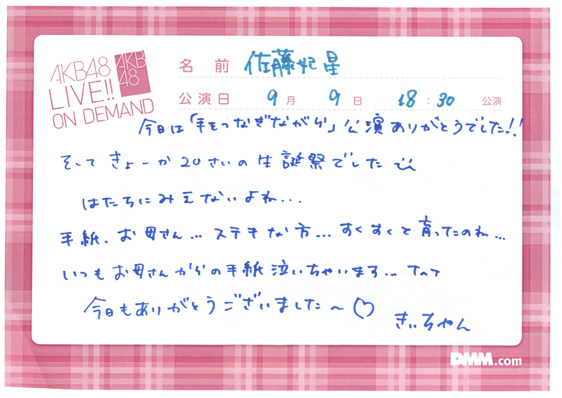 AKB48
LIVE!!
ON DEMAND
AKB
48
名前 佐藤妃星
公演日 9月 9日 18:30 公演
今日は「手をつなぎながら」公演ありがとうでした!!
そして きょーか 20さいの生誕祭でした
はたちにみえないよね...
手紙、お母さん... ステキな方... すくすくと育ったのね...
いつもお母さんからの手紙泣いちゃいます... T^T
今日もありがとうございました〜♡
きぃちゃん
DMM.com